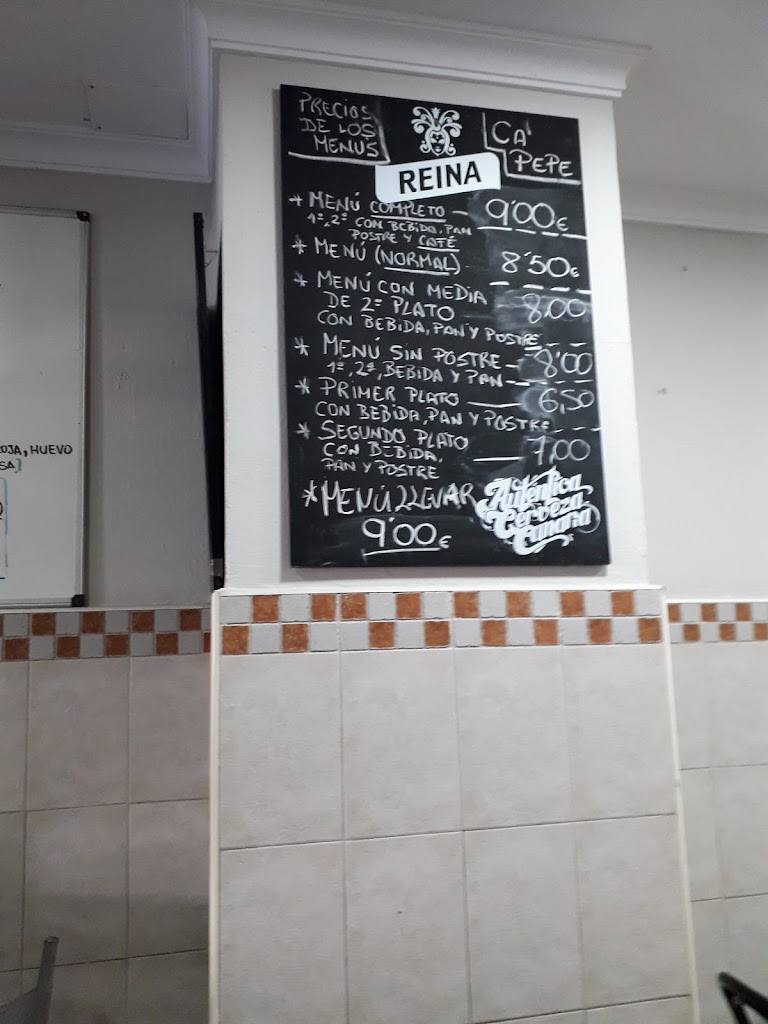 PRECIOS
DE LOS
MENUS
CA'
PEPE
REINA
* MENÚ COMPLETO — 9'00€
1º, 2º CON BEBIDA, PAN
POSTRE Y CAFÉ
* MENÚ (NORMAL) 8'50€
* MENÚ CON MEDIA
DE 2º PLATO — 8,00
CON BEBIDA, PAN Y POSTRE
* MENÚ SIN POSTRE — 8'00
1º, 2º, BEBIDA Y PAN
* PRIMER PLATO — 6,50
CON BEBIDA, PAN Y POSTRE
* SEGUNDO PLATO
CON BEBIDA, — 7,00
PAN Y POSTRE
* MENÚ LLEVAR
9'00€
Auténtica
Cerveza
Canaria
OJA, HUEVO
SA]